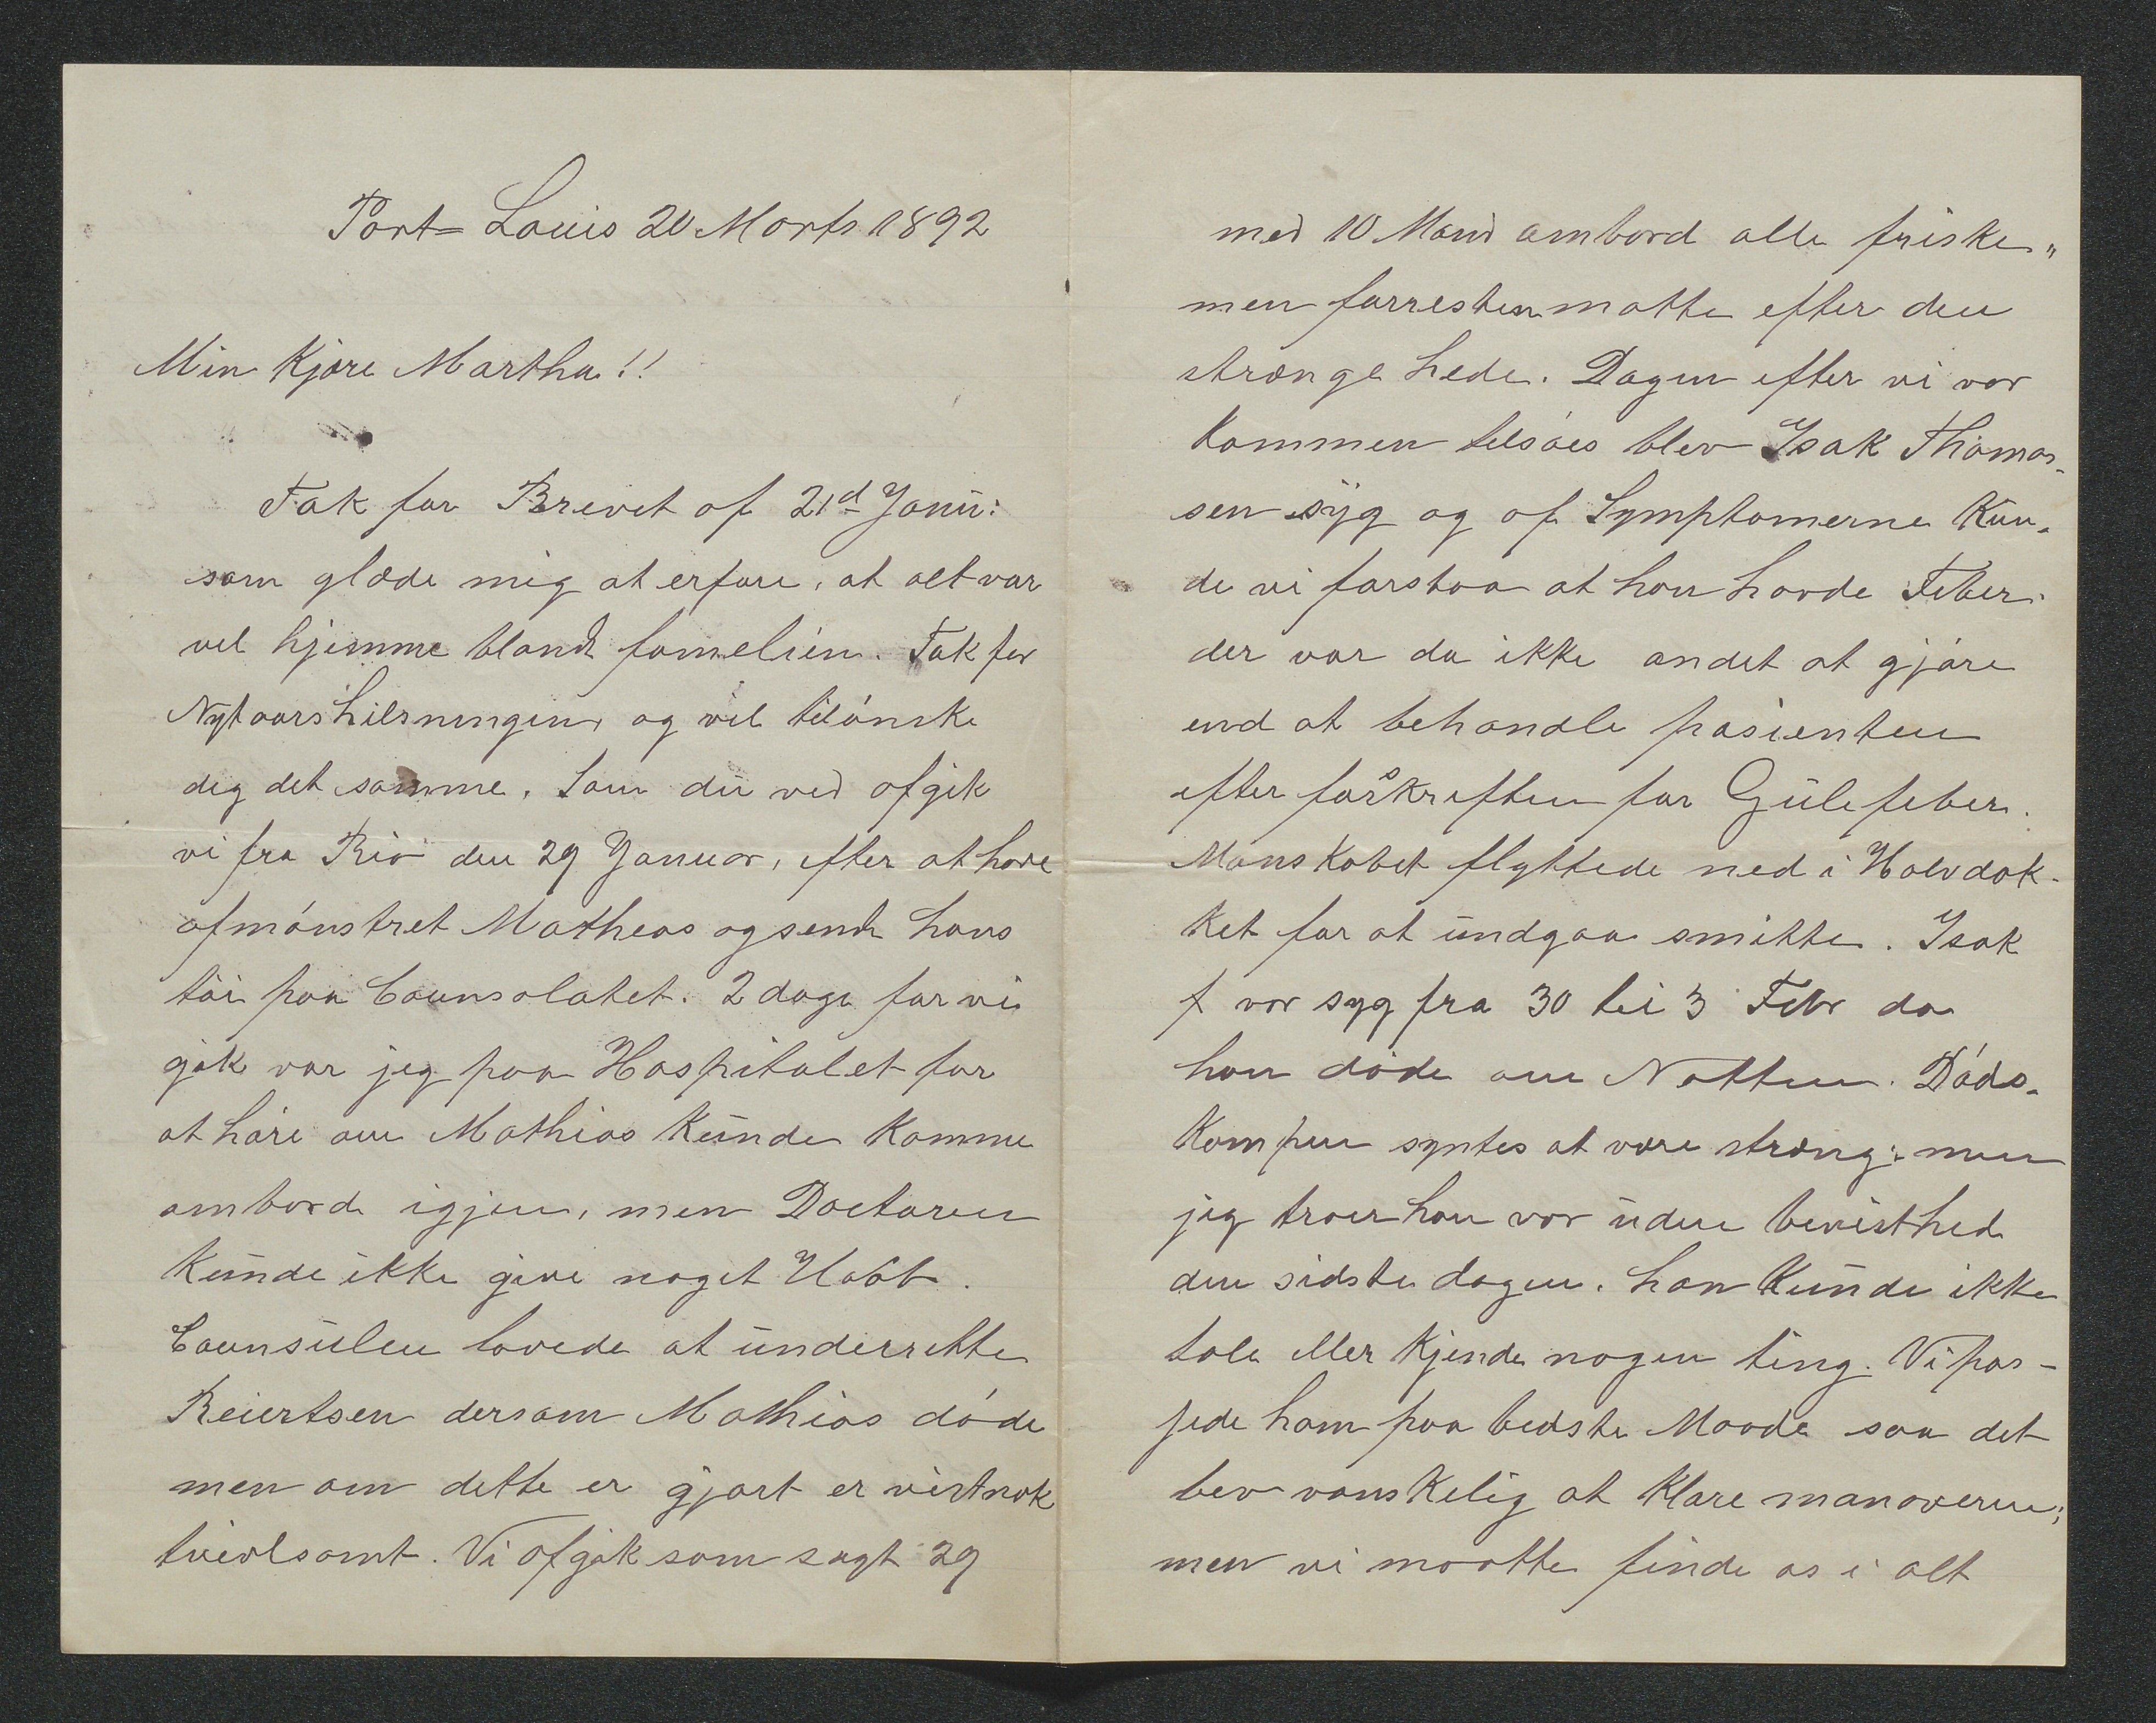 Port= Louis 20 Marts 1892
Min Kjære Martha!!
Tak for Brevet af 21d Janu:
som glæde mig at erfare, at alt var
vel hjemme blandt famelien. Tak for
Nytaarshilsningen, og vil tilónske
dig det samme. Som du ved afgik
vi fra Rio den 29 Januar, efter at have
afmónstret Matheas og sendt hans
tói paa Counsolatet. 2 dage før vi
gik var jeg paa Hospitalet for
at hóre om Mathias kunde komme
ombord igjen, men Doctoren
kunde ikke give noget Haab.
Counsulen lovede at underrette
Reiertsen dersom Mathias dóde
men om dette er gjort er vistnok
tvivlsomt. Vi afgik som sagt 29
med 10 Mand ombord alle friske,,
men forresten matte efter den
strænge hede. Dagen efter vi var
kommen tilsóes blev Isak Thomas-
sen syg og af Symptomerne Kun-
de vi forstaa at han havde Feber.
der var da ikke andet at gjóre
end at behandle pasienten
efter forskriften for Gulefeber.
Manskabet flyttede ned i Halvdæk-
ket for at undgaa smitte. Isak
var syg fra 30 til 3 Febr da
han dóde om Natten. Dóds-
kampen syntes at være stræng; men
jeg troer han var uden bevisthed
den sidste dagen. han kunde ikke
tale eller kjende nogen ting. Vi pas-
sede ham paa bedste Maade saa det
blev vanskelig at klare manøveren;
men vi maatte finde os i alt